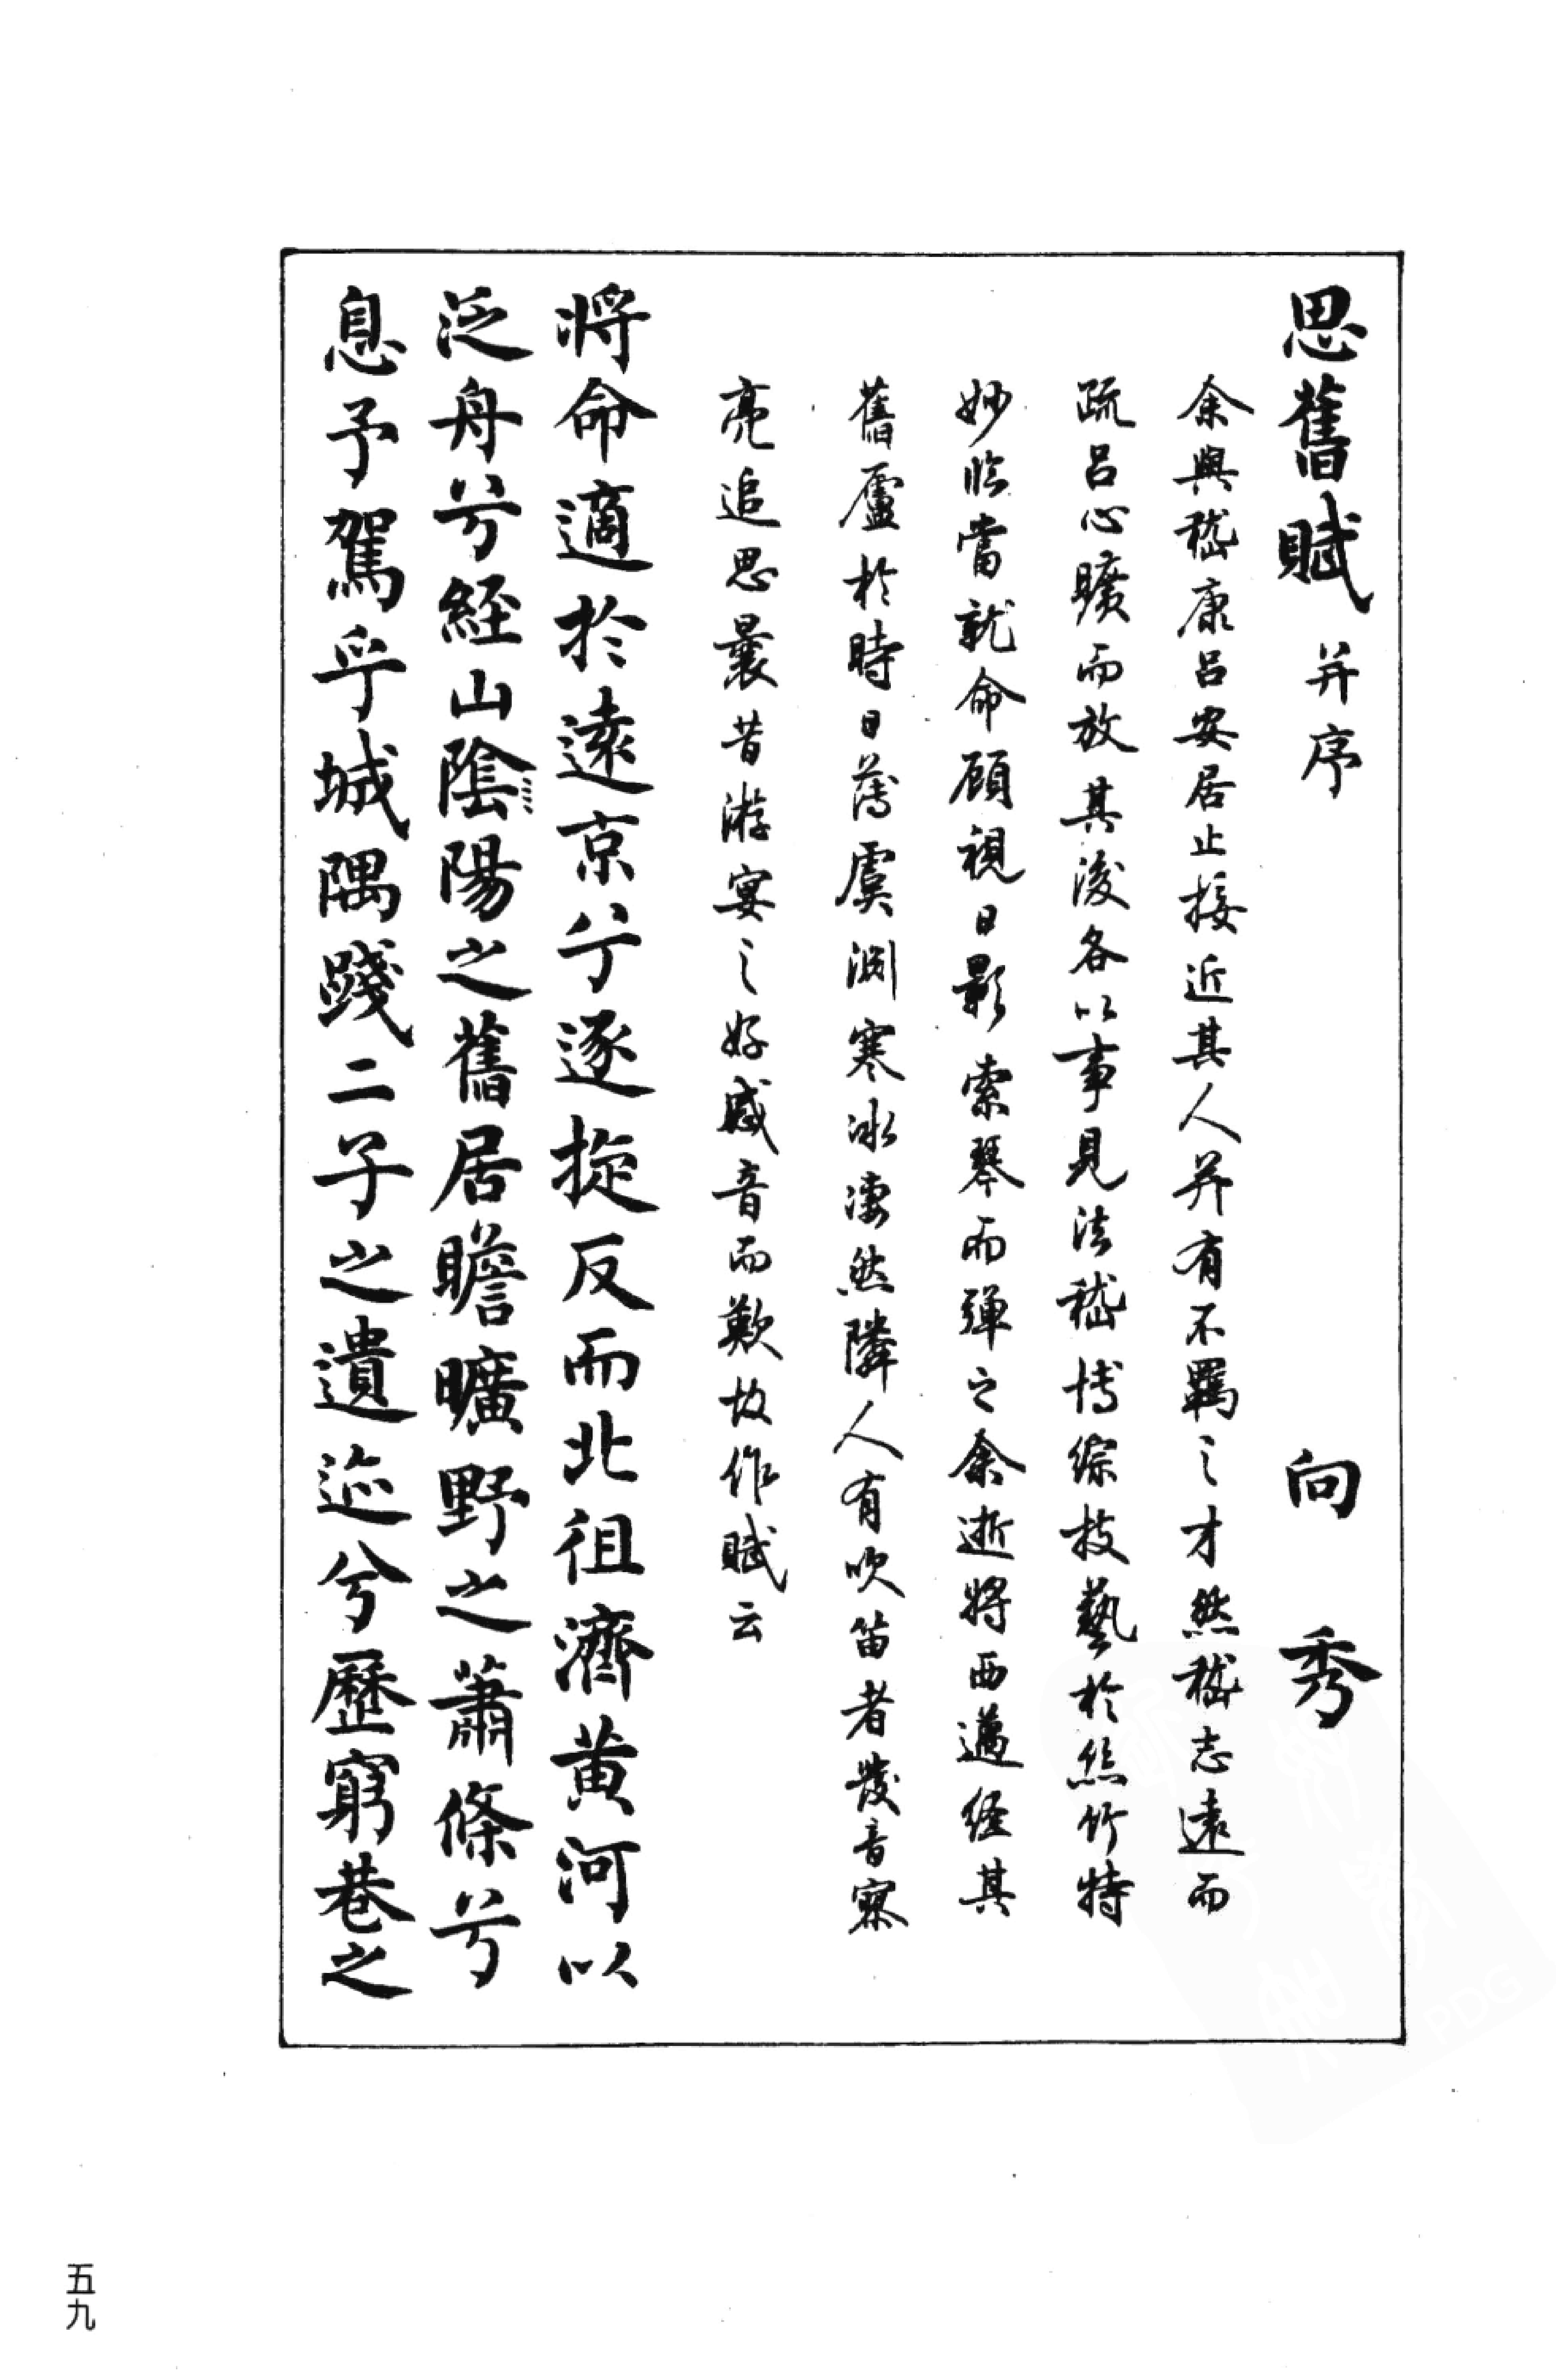 思舊賦 并序 向秀
余與嵇康呂安居止接近其人并有不羈之才然嵇志遠而
疏呂心曠而放其後各以事見法嵇博綜技藝於絲竹特
妙臨當就命顧視日影索琴而彈之余逝將西邁經其
舊廬於時日薄虞淵寒冰凄然隣人有吹笛者發音寥
亮追思曩昔游宴之好感音而歎故作賦云
將命適於遠京兮逐旋反而北徂濟黄河以
泛舟兮經山陰陽之舊居瞻曠野之蕭條兮
息予駕乎城隅踐二子之遺迹兮歷窮巷之
五九
PDG